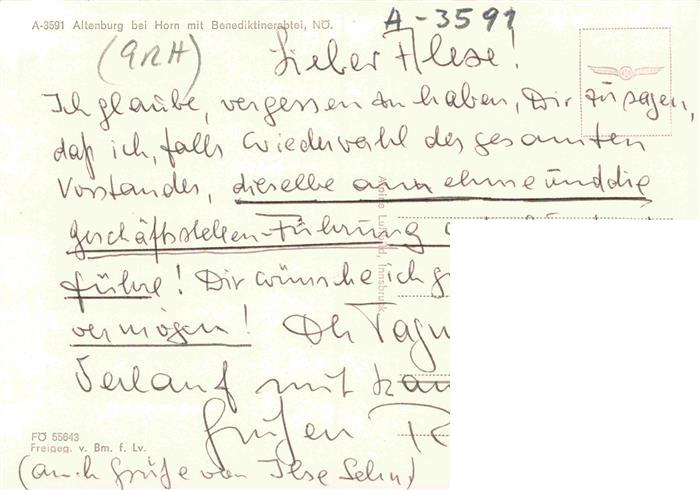 A-3591 Altenburg bei Horn mit Benediktinerabtei, NÖ.
A-3591
(GRH)
Lieber Alese!
Ich glaube, vergessen zu haben, Dir zu sagen,
daß ich, falls Wiederwahl des gesamten
Vorstandes, dieselbe annehme und die
geschäftsstellen-Führung
führe! Dir wünsche ich
vermögen! Der
Verlauf mit
Grüßen
Alpine Luftbild, Innsbruck
FÖ 55643
Freigeg. v. Bm. f. Lv.
(auch Grüße von Ilse